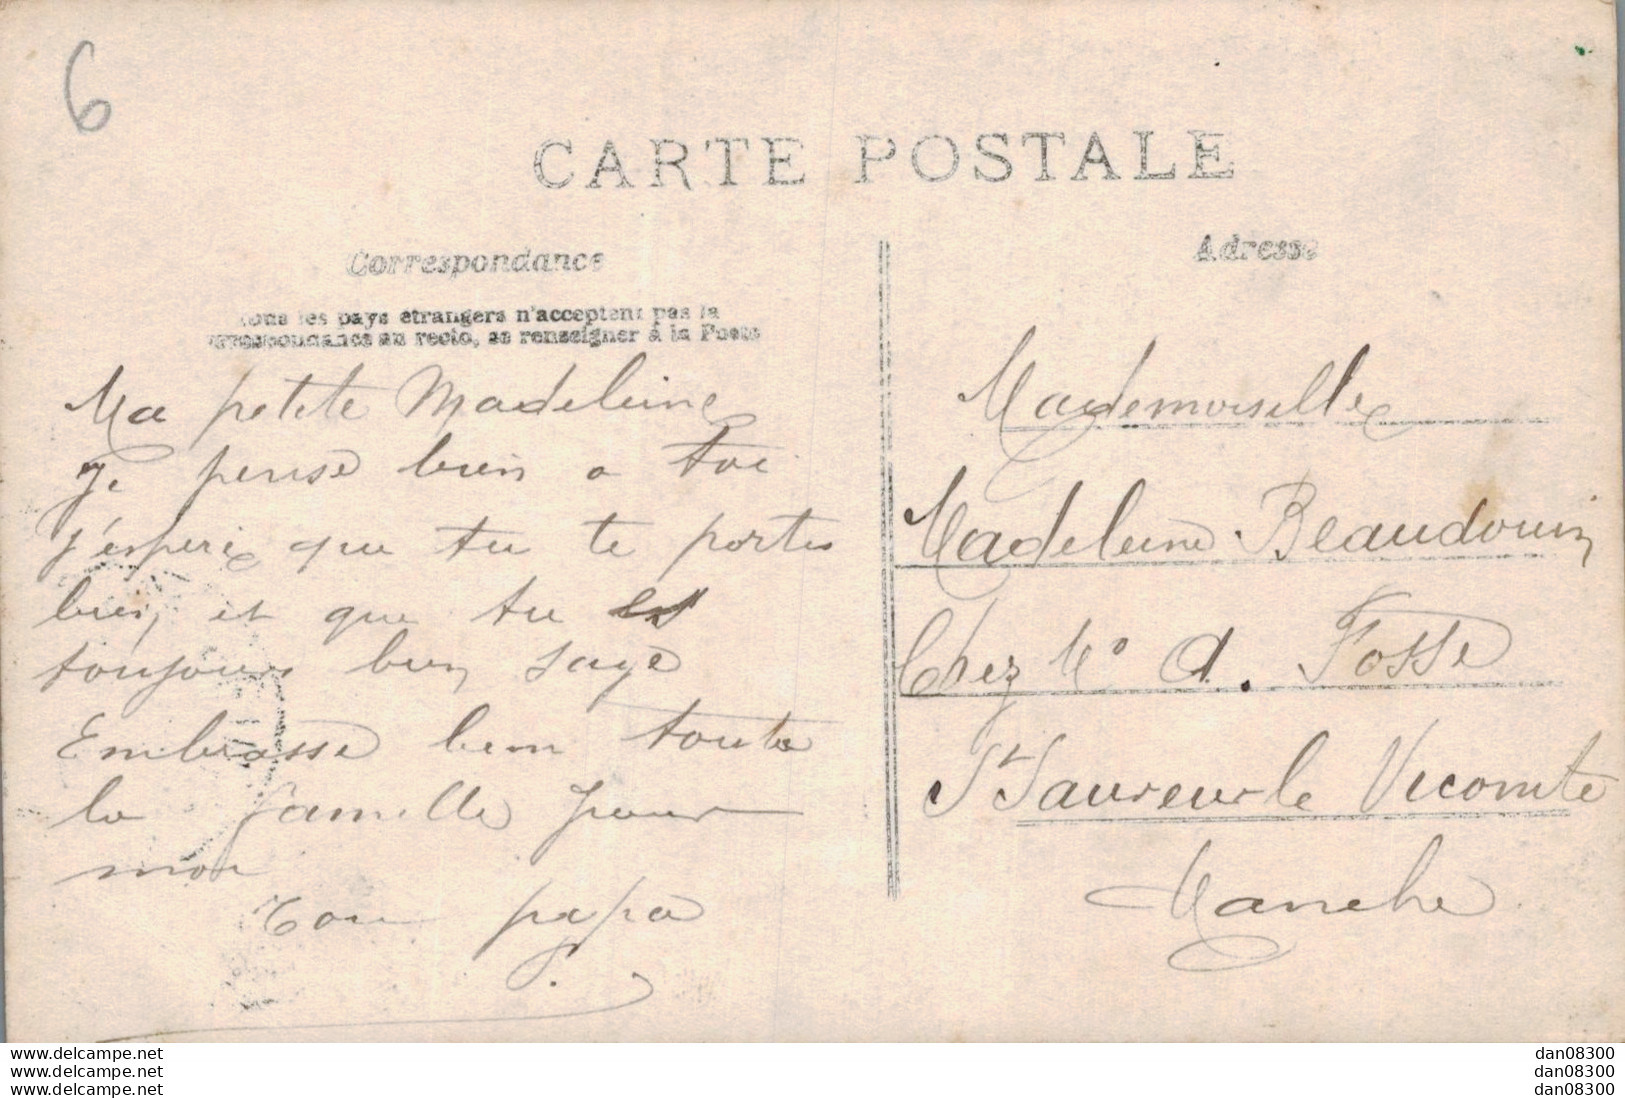 6
CARTE POSTALE
Correspondance
Tous les pays étrangers n'acceptent pas la
correspondance au recto, se renseigner à la Poste
Ma petite Madeleine
Je pense bien a toi
j'espère que tu te portes
bien, et que tu es
toujours bien sage
Embrasse bien toute
la famille pour
moi
Ton papa
Adresse
Mademoiselle
Madeleine Beaudouin
Chez Mr A. Fosse
St Sauveur le Vicomte
Manche
www.delcampe.net
www.delcampe.net
www.delcampe.net
dan08300
dan08300
dan08300